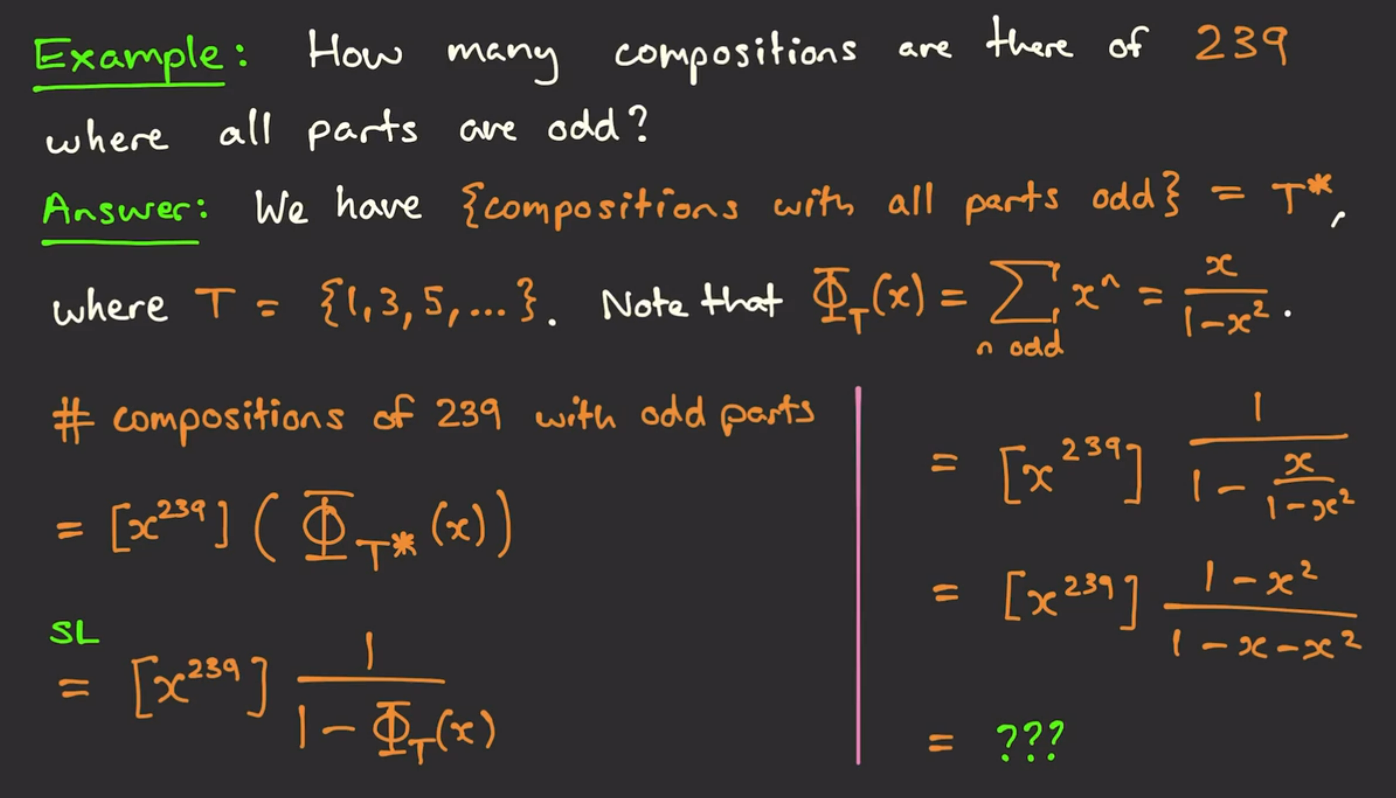 Example: How many compositions are there of 239
where all parts are odd?
Answer: We have {compositions with all parts odd} = T*,
where T = {1,3,5,...}. Note that Φ_T(x) = ∑_{n odd} x^n = x/(1-x²).
# compositions of 239 with odd parts
= [x^239] (Φ_{T*}(x))
SL
= [x^239] 1/(1-Φ_T(x))
= [x^239] 1/(1 - x/(1-x²))
= [x^239] (1-x²)/(1-x-x²)
= ???